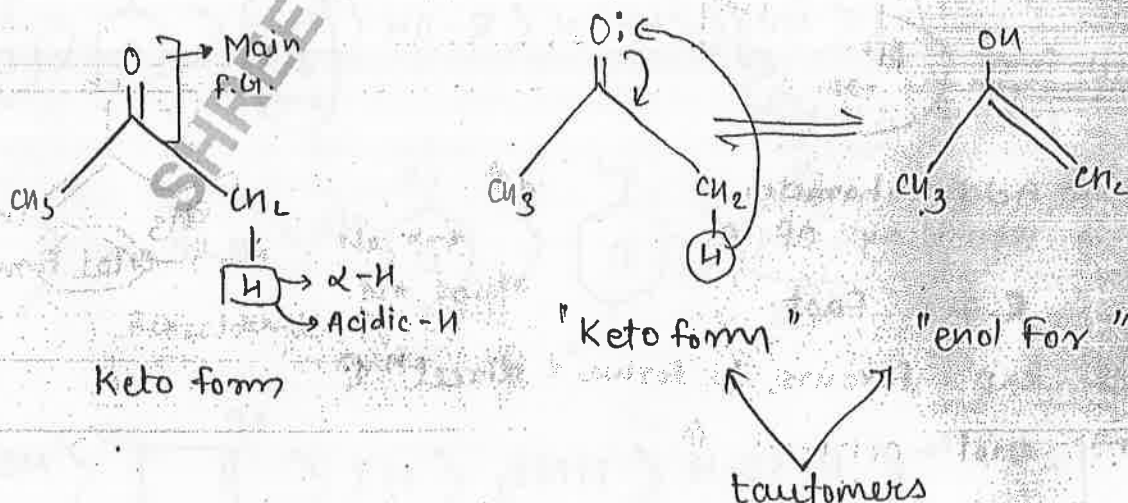 O → Main
f.G.
CH3 CH2
H → α-H
→ Acidic-H
Keto form
O:
CH3 CH2
H
"Keto form"
OH
CH3 CH2
"enol For"
tautomers
SHREE